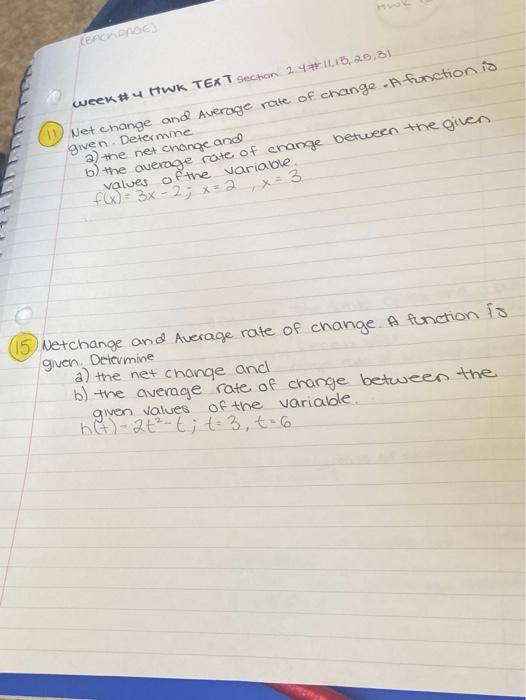 (BACKPAGE)
HWK
week#4 HWK TEXT Section 2.4 # 11,15,25,31
11 Net change and Average rate of change. A function is
given. Determine
a) the net change and
b) the average rate of change between the given
values of the variable.
f(x) = 3x - 2; x = 2, x = 3
15 Net change and Average rate of change. A function is
given. Determine
a) the net change and
b) the average rate of change between the
given values of the variable.
h(t) - 2t² - t; t = 3, t = 6